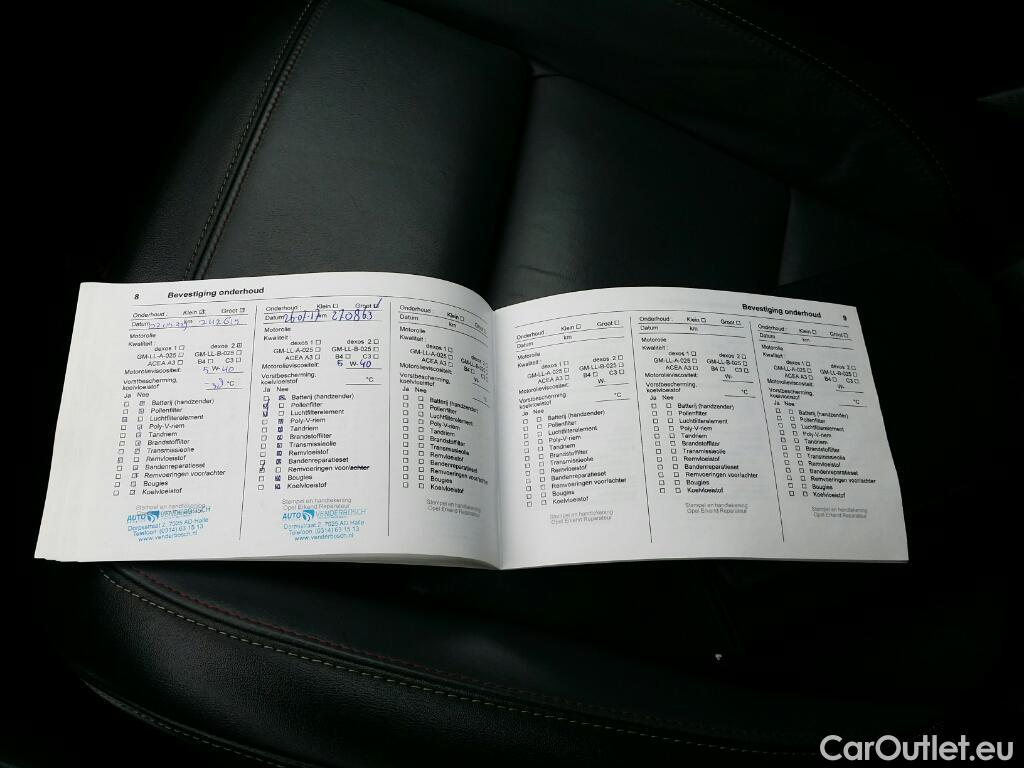 8 Bevestiging onderhoud
Onderhoud : Klein Groot
Datum km 242619
Motorolie
Kwaliteit :
dexos 1 dexos 2
GM-LL-A-025 GM-LL-B-025
ACEA A3 B4 C3
Motorolieviscositeit: 5 W- 40
Vorstbescherming,
koelvloeistof -30 °C
Ja Nee
Batterij (handzender)
Pollenfilter
Luchtfilterelement
Poly-V-riem
Tandriem
Brandstoffilter
Transmissieolie
Remvloeistof
Bandenreparatieset
Remvoeringen voor/achter
Bougies
Koelvloeistof
Stempel en handtekening
AUTO VENDERBOSCH
Dorpsstraat 2, 7025 AD Halle
Telefoon (0314) 63 15 13
www.venderbosch.nl
Onderhoud : Klein Groot
Datum 26-07-17 km 270863
Motorolie
Kwaliteit :
dexos 1 dexos 2
GM-LL-A-025 GM-LL-B-025
ACEA A3 B4 C3
Motorolieviscositeit: 5 W- 40
Vorstbescherming,
koelvloeistof °C
Ja Nee
Batterij (handzender)
Pollenfilter
Luchtfilterelement
Poly-V-riem
Tandriem
Brandstoffilter
Transmissieolie
Remvloeistof
Bandenreparatieset
Remvoeringen voor/achter
Bougies
Koelvloeistof
Stempel en handtekening
Opel Erkend Reparateur
AUTO VENDERBOSCH
Dorpsstraat 2, 7025 AD Halle
Telefoon (0314) 63 15 13
www.venderbosch.nl
Onderhoud : Klein Groot
Datum km
Motorolie
Kwaliteit :
dexos 1 dexos 2
GM-LL-A-025 GM-LL-B-025
ACEA A3 B4 C3
Motorolieviscositeit: W-
Vorstbescherming,
koelvloeistof °C
Ja Nee
Batterij (handzender)
Pollenfilter
Luchtfilterelement
Poly-V-riem
Tandriem
Brandstoffilter
Transmissieolie
Remvloeistof
Bandenreparatieset
Remvoeringen voor/achter
Bougies
Koelvloeistof
Stempel en handtekening
Opel Erkend Reparateur
Bevestiging onderhoud 9
Onderhoud : Klein Groot
Datum km
Motorolie
Kwaliteit :
dexos 1 dexos 2
GM-LL-A-025 GM-LL-B-025
ACEA A3 B4 C3
Motorolieviscositeit: W-
Vorstbescherming,
koelvloeistof °C
Ja Nee
Batterij (handzender)
Pollenfilter
Luchtfilterelement
Poly-V-riem
Tandriem
Brandstoffilter
Transmissieolie
Remvloeistof
Bandenreparatieset
Remvoeringen voor/achter
Bougies
Koelvloeistof
Stempel en handtekening
Opel Erkend Reparateur
Onderhoud : Klein Groot
Datum km
Motorolie
Kwaliteit :
dexos 1 dexos 2
GM-LL-A-025 GM-LL-B-025
ACEA A3 B4 C3
Motorolieviscositeit: W-
Vorstbescherming,
koelvloeistof °C
Ja Nee
Batterij (handzender)
Pollenfilter
Luchtfilterelement
Poly-V-riem
Tandriem
Brandstoffilter
Transmissieolie
Remvloeistof
Bandenreparatieset
Remvoeringen voor/achter
Bougies
Koelvloeistof
Stempel en handtekening
Opel Erkend Reparateur
Onderhoud : Klein Groot
Datum km
Motorolie
Kwaliteit :
dexos 1 dexos 2
GM-LL-A-025 GM-LL-B-025
ACEA A3 B4 C3
Motorolieviscositeit: W-
Vorstbescherming,
koelvloeistof °C
Ja Nee
Batterij (handzender)
Pollenfilter
Luchtfilterelement
Poly-V-riem
Tandriem
Brandstoffilter
Transmissieolie
Remvloeistof
Bandenreparatieset
Remvoeringen voor/achter
Bougies
Koelvloeistof
Stempel en handtekening
Opel Erkend Reparateur
CarOutlet.eu